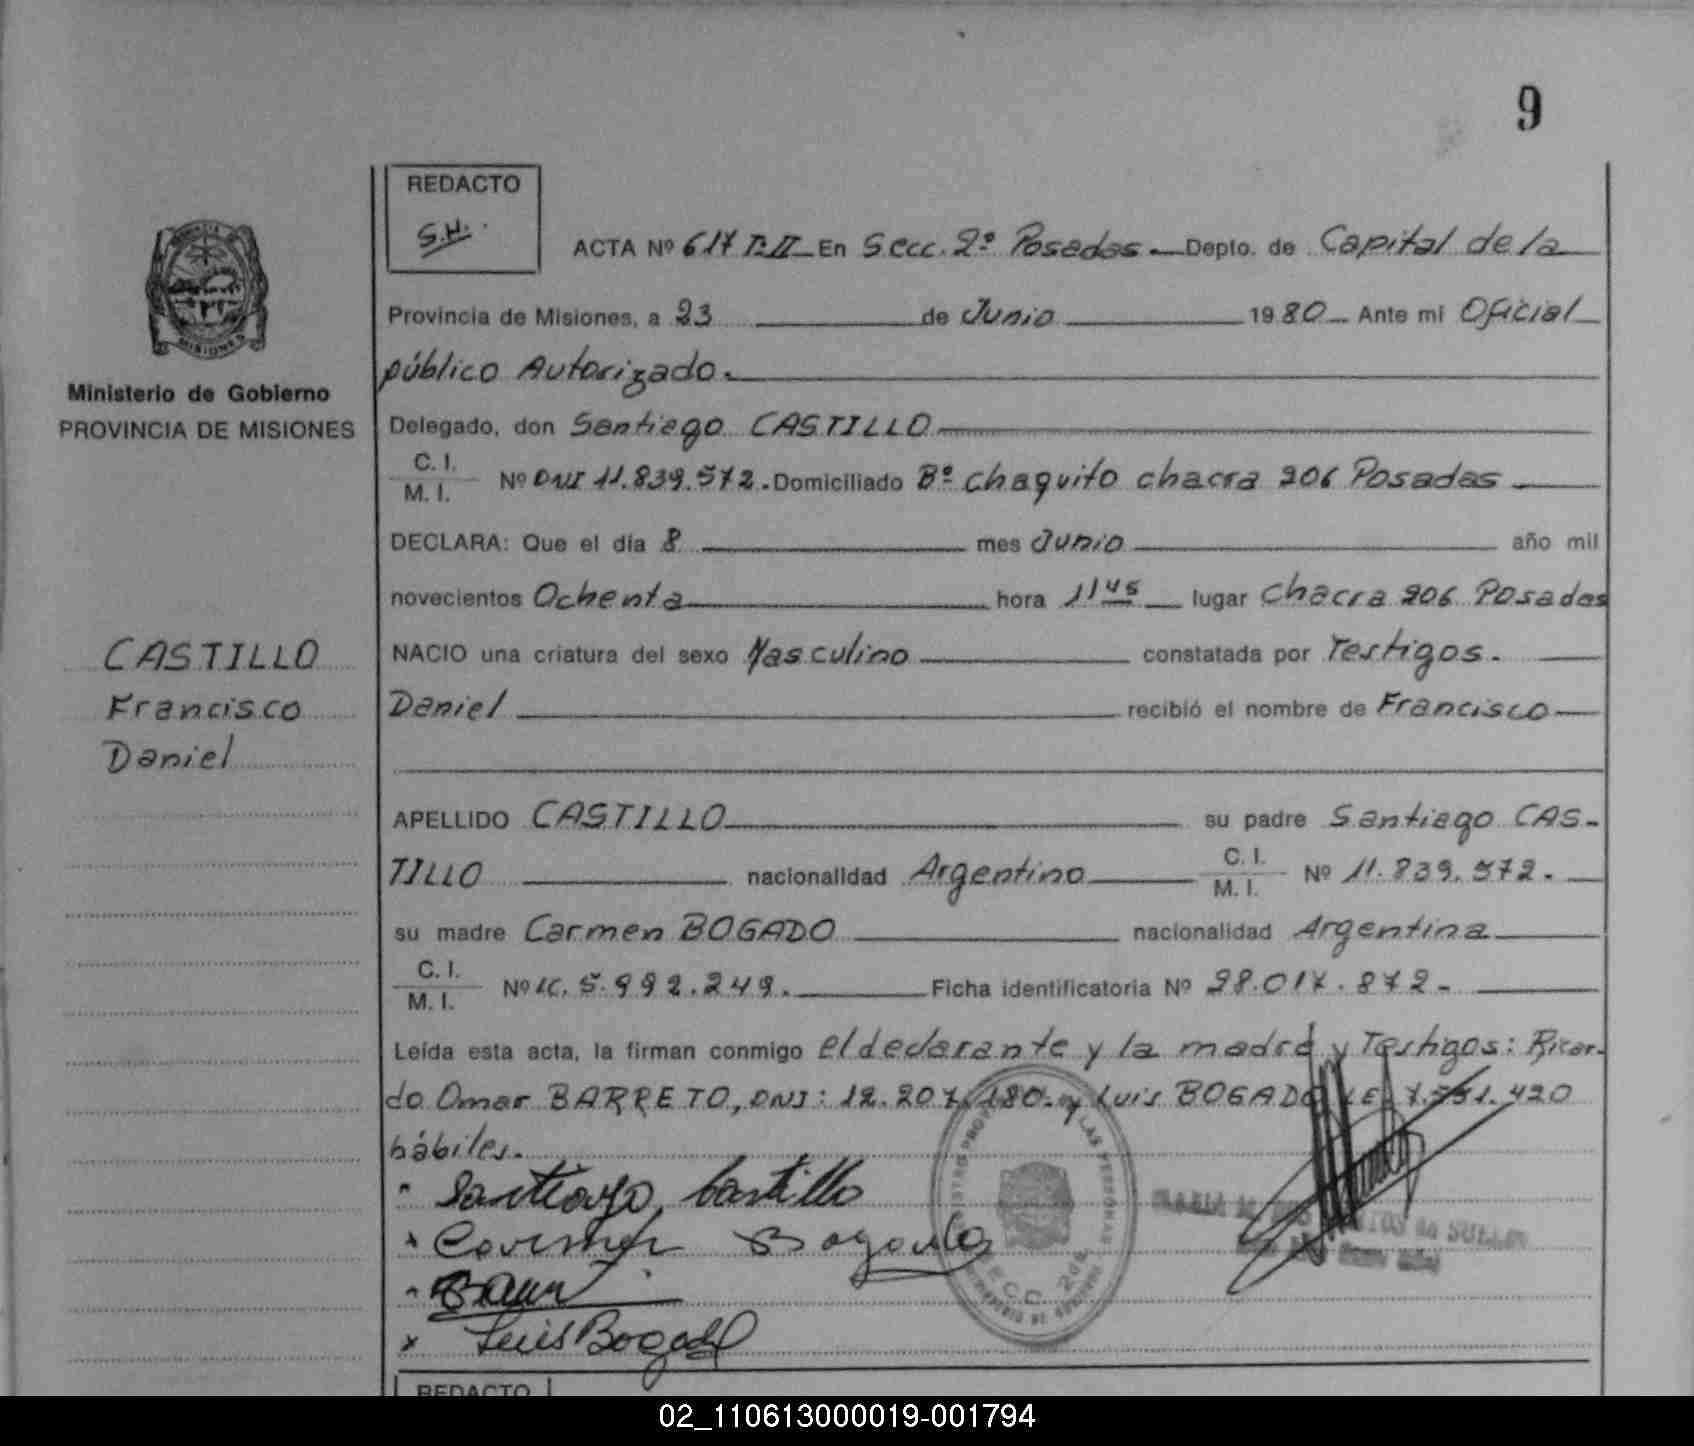 9
REDACTO
S.H.
ACTA Nº 617 T:II En Secc. 2º Posadas. Depto. de Capital de la
Provincia de Misiones, a 23 de Junio 1980 Ante mi Oficial
público Autorizado.
MISIONES
Ministerio de Gobierno
PROVINCIA DE MISIONES
Delegado, don Santiago CASTILLO
C. I.
M. I. Nº DNI 11.839.572. Domiciliado Bº Chaquito chacra 206 Posadas
DECLARA: Que el día 8 mes Junio año mil
novecientos Ochenta hora 11 45 lugar Chacra 206 Posadas
CASTILLO
Francisco
Daniel
NACIO una criatura del sexo Masculino constatada por Testigos.
Daniel recibió el nombre de Francisco
APELLIDO CASTILLO su padre Santiago CAS-
TILLO nacionalidad Argentino C. I. M. I. Nº 11.839.572.
su madre Carmen BOGADO nacionalidad Argentina
C. I.
M. I. Nº LC. 5.992.249. Ficha identificatoria Nº 28.017.872-
Leída esta acta, la firman conmigo el declarante y la madre y Testigos: Ricar-
do Omar BARRETO, DNI: 12.207.180. y Luis BOGADO LE. 7.551.420
hábiles.
Santiago Castillo
Carmen Bogado
Luis Bogado
SECC. 2da
REDACTO
02_110613000019-001794